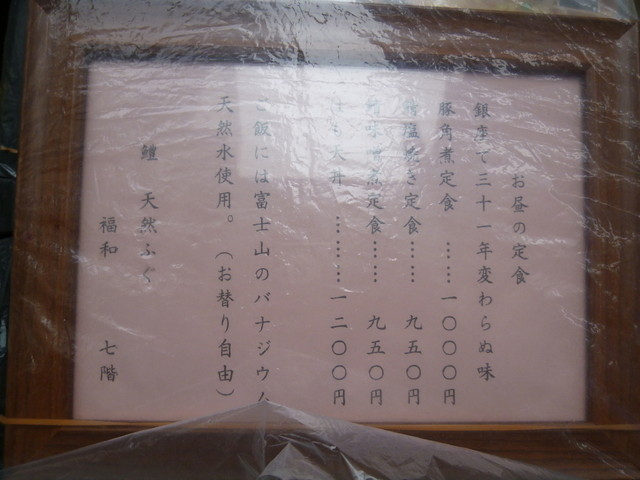 お昼の定食
銀座で三十一年変わらぬ味
豚角煮定食 ……一〇〇〇円
塩焼き定食…… 九五〇円
味噌煮定食…… 九五〇円
天丼 ………一二〇〇円
ご飯には富士山のバナジウム
天然水使用。（お替り自由）
鱧 天然ふぐ
福和 七階